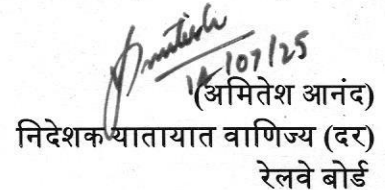 Amitesh
14/07/25
(अमितेश आनंद)
निदेशक यातायात वाणिज्य (दर)
रेलवे बोर्ड